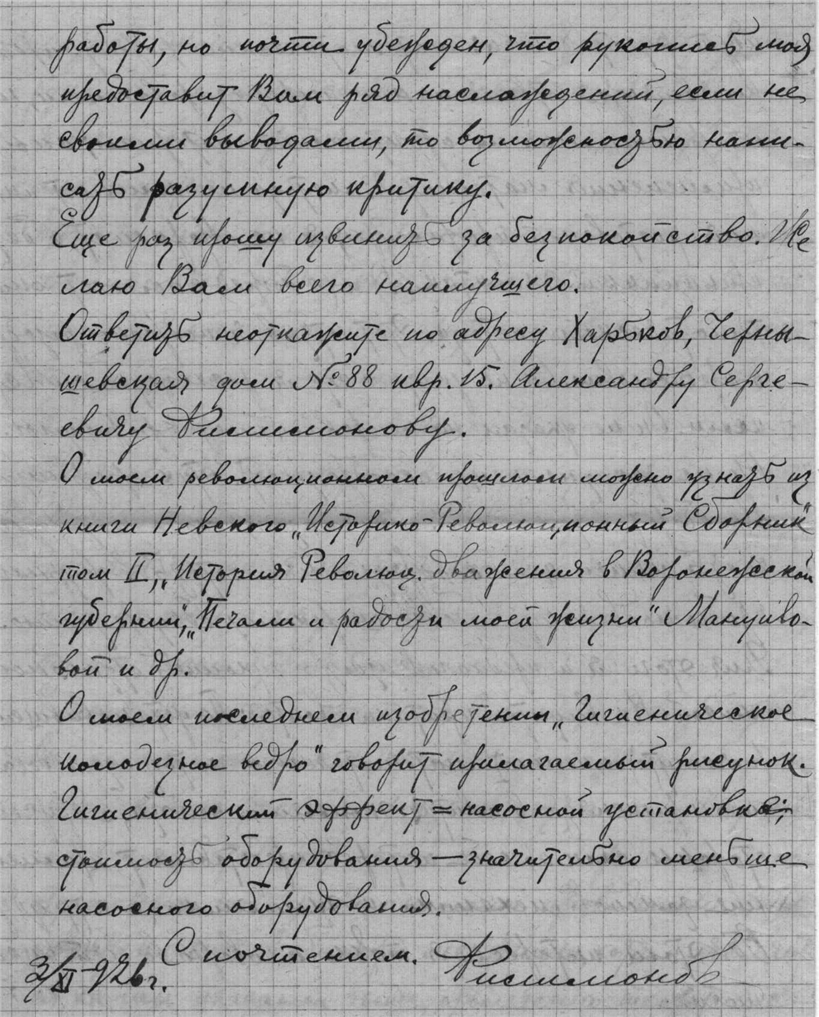 работы, но почти убежден, что рукопись моя
предоставит Вам ряд наслаждений, если не
своими выводами, то возможностью напи-
сать разумную критику.
Еще раз прошу извинить за безпокойство. Же
лаю Вам всего наилучшего.
Ответить неоткажите по адресу Харьков, Черны-
шевская дом №88 квр. 15. Александру Серге-
евичу
О моем революционном прошлом можно узнать из
книги Невского „Историко-Революционный Сборник"
том II, „История Революц. движения в Воронежской
губернии", „Печали и радости моей жизни"
вой и др.
О моем последнем изобретении „Гигиеническое
колодезное ведро" говорит прилагаемый рисунок.
Гигиенический эффект = насосной установке;
стоимость оборудования — значительно меньше
насосного оборудования.
С почтением.
3/XI 926 г.